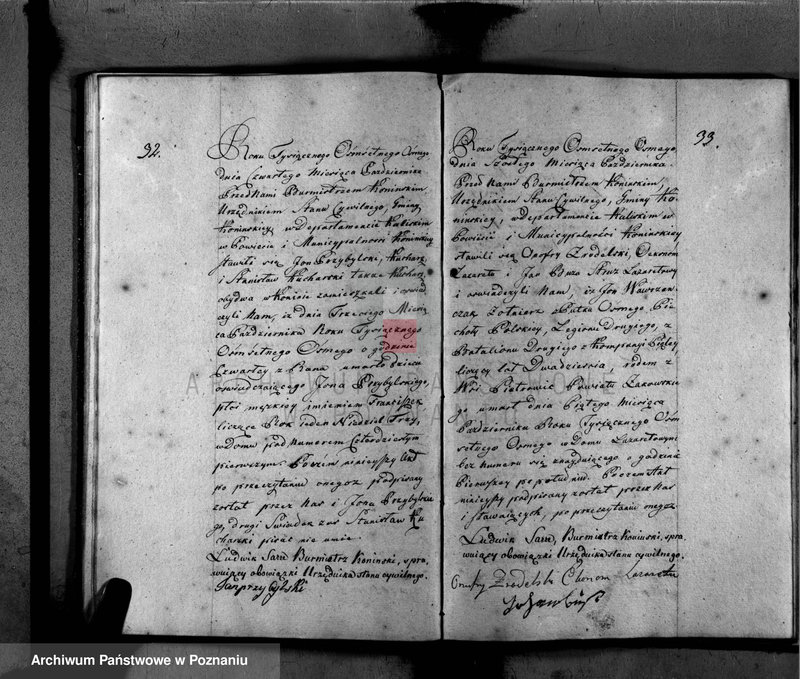 92.
Roku Tysiącznego Ośmsetnego Osmego
dnia Czwartego Miesiąca Pazdziernika
Przed Nami Burmistrzem Konińskim,
Urzędnikiem Stanu Cywilnego, Gminy
Konińskiey, w Departamencie Kaliskim
w Powiecie i Municypalności Konińskiey
stawili się Jan Przybylski, Kucharz
i Stanisław Kucharski także Kucharz
obydwa w Koninie zamieszkali i oswiad
czyli Nam, iż dnia Trzeciego Miesią
ca Pazdziernika Roku Tysiącznego
Osmsetnego Osmego o godzinie
Czwartey z Rana umarło dziecie
oswiadczaiącego Jana Przybylskiego,
płci męskiey imieniem Franciszek
liczące Rok ieden Niedziel Trzy,
w domu pod Numerem Czterdziestym
pierwszym. Poczém ninieyszy Akt
po przeczytaniu onegoż podpisany
został przez Nas i Jana Przybylskie
go, drugi Swiadek zaś Stanisław Ku
charski pisać nie umie.
Ludwik Sare Burmistrz Koniński, spra
wuiący obowiązki Urzędnika stanu cywilnego.
Jan Przybylski
93.
Roku Tysiącznego Osmsetnego Osmego
dnia Szóstego Miesiąca Pazdziernika
Przed Nami Burmistrzem Konińskim,
Urzędnikiem Stanu Cywilnego, Gminy Ko
nińskiey, w Departamencie Kaliskim w
Powiecie i Municypalności Konińskiey
stawili się Onufry Zrodelski, Oekonom
Lazaretu i Jan Stróż Lazaretowy
i oswiadczyli Nam, iż Jan Wawrzyn
czak Zołnierz z Pułku Osmego Pie
choty Polskiey, Legionu Drugiego, z
Batalionu Drugiego z Kompanyi Piątey,
liczący lat Dwadziescia, rodem z
Wsi Piotrowic Powiatu
go umarł dnia Piątego Miesiąca
Pazdziernika Roku Tysiącznego Ośm
setnego Osmego w domu Lazaretowym
bez Numeru się znayduiącego o godzinie
Pierwszey po południu. Poczem Akt
ninieyszy podpisany został przez Nas
i stawaiących, po przeczytaniu onegoż
Ludwik Sare, Burmistrz Koniński, spra
wuiący obowiązki Urzędnika stanu cywilnego.
Onufry Zrodelski Ekonom Lazaretu
Archiwum Państwowe w Poznaniu